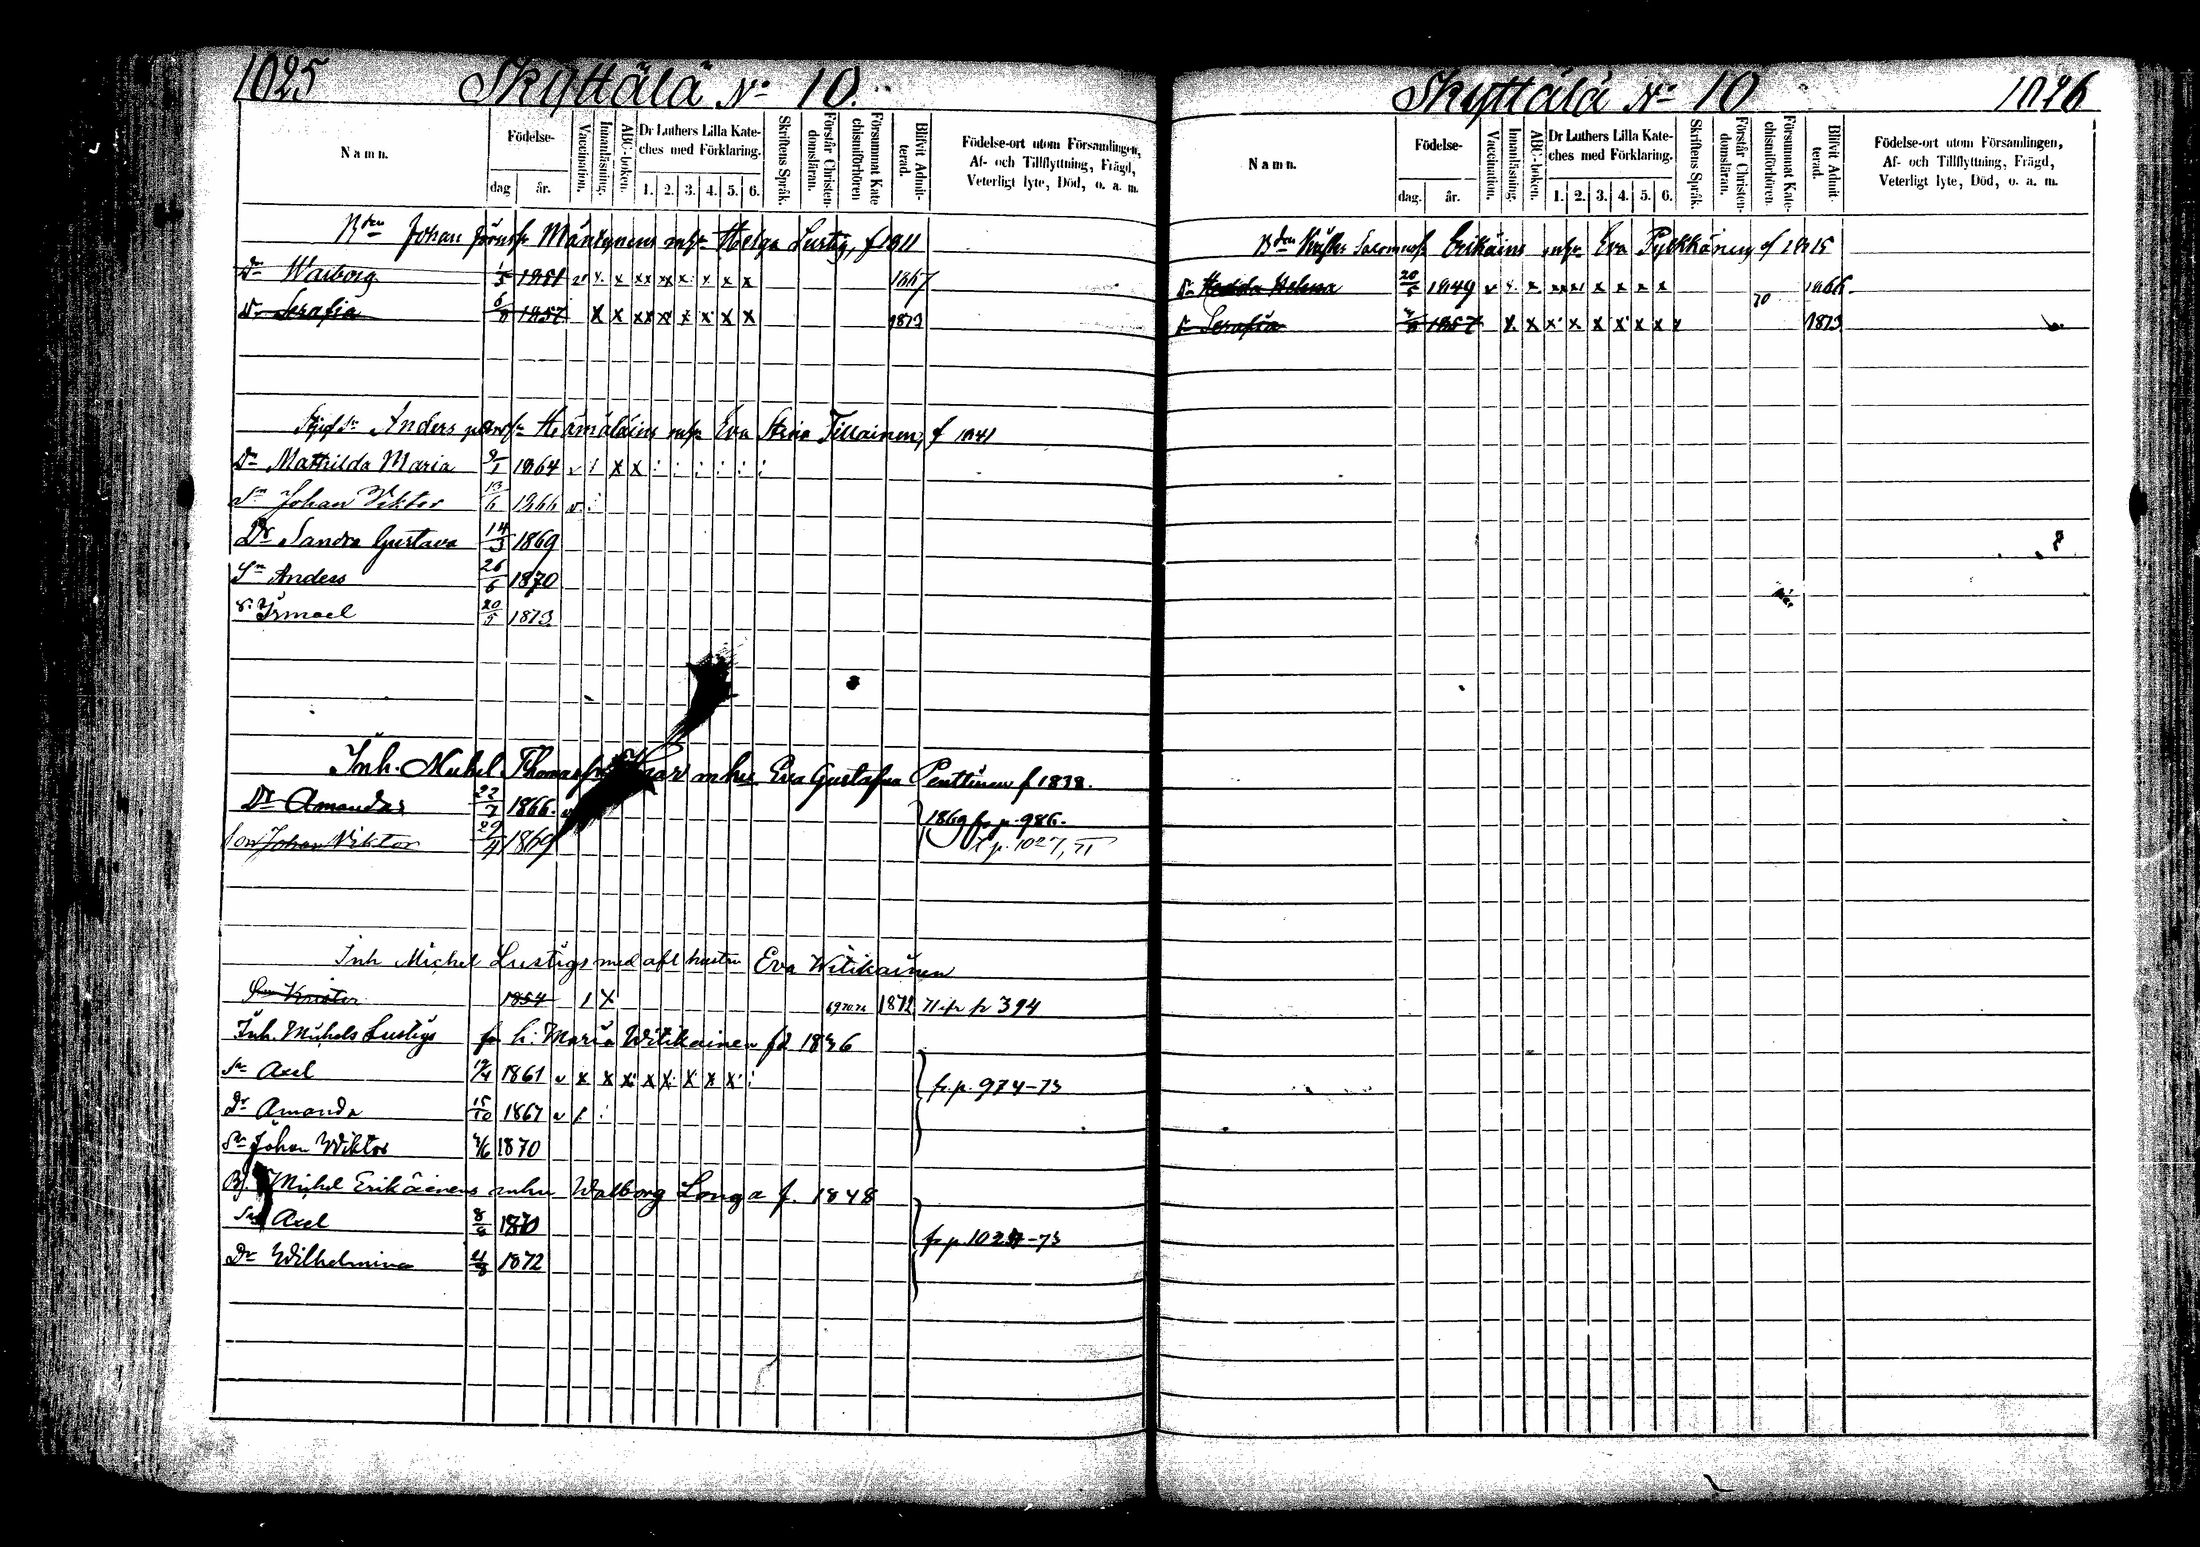 1025 Skyttälä No 10.
Namn.
Födelse-
dag
år.
Vaccination.
Innanläsning.
ABC-boken.
Dr Luthers Lilla Kate-
ches med Förklaring.
1. 2. 3. 4. 5. 6.
Skriftens Språk.
Förstår Christen-
domsläran.
Försummat Kate
chismiförhören
Blifvit Admit-
terad.
Födelse-ort utom Församlingen,
Af- och Tillflyttning, Frägd,
Veterligt lyte, Död, o. a. m.
Johan Mänkynens Helga Lustig, f 1811
Dr Warborg 1851 v x x xx xx x x x x 1867
Dr Serafia 1857 x x xx x x x x x 1873
Anders Hämäläins Eva Stina Tillainen, f 1841
Dr Mathilda Maria 9/1 1864 v / x x
Sn Johan Viktor 13/6 1866 v
Dr Sandra Gustava 14/3 1869
Sn Anders 26/6 1870
S. Ismael 20/5 1873
Inh. Michel Thomas Eva Gustafva Penttinen f 1838.
Dr Amanda 22/7 1866. v
1869 fr p. 986.
Son Johan Viktor 29/4 1869
t p. 1027, II
Inh Michel Lustigs med afl hustru Eva Witikainen
Krister 1854 1 x 1872 p 394
Inh. Michels Lustigs fr h. Maria Witikainen fd 1836
Sn Axel 1861 v x x x x x x x x
fr. p. 974-73
Dr Amanda 15/10 1867 v /
Sn Johan Wiktor 1870
Michel Erikäinens Walborg Longa f. 1848
Axel 8/8 1870
fr p 1027-73
Dr Wilhelmina 4/8 1872
Skyttälä No 10 1026
Namn.
Födelse-
dag.
år.
Vaccination.
Innanläsning.
ABC-boken.
Dr Luthers Lilla Kate-
ches med Förklaring.
1. 2. 3. 4. 5. 6.
Skriftens Språk.
Förstår Christen-
domsläran.
Försummat Kate-
chismiförhören.
Blifvit Admit-
terad.
Födelse-ort utom Församlingen,
Af- och Tillflyttning, Frägd,
Veterligt lyte, Död, o. a. m.
Erikäins Eva Pylkkänen, f 1815
Hedda Helena 20/5 1849 v x x xx xx x x x x 70 1866
Serafia 1857 x x x x x x x x x 1873